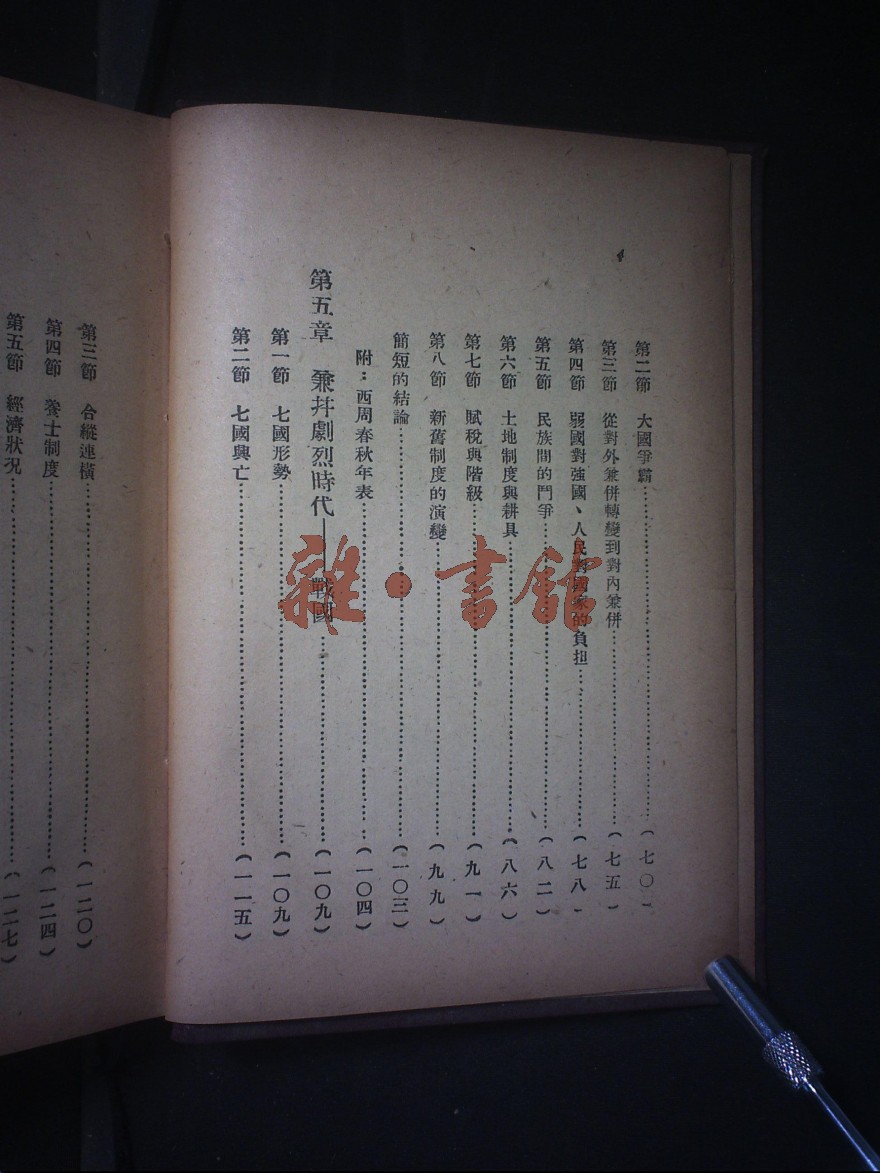 第二節　大國爭霸……（七〇）
第三節　從對外兼併轉變到對內兼併……（七五）
第四節　弱國對強國、人民對國家的負担……（七八）
第五節　民族間的鬥爭……（八二）
第六節　土地制度與耕具……（八六）
第七節　賦稅與階級……（九一）
第八節　新舊制度的演變……（九九）
簡短的結論……（一〇三）
附：西周春秋年表……（一〇四）
第五章　兼并劇烈時代——戰國……（一〇九）
第一節　七國形勢……（一〇九）
第二節　七國興亡……（一一五）
第三節　合縱連橫……（一二〇）
第四節　養士制度……（一二四）
第五節　經濟狀況……（一二七）
雜·書館